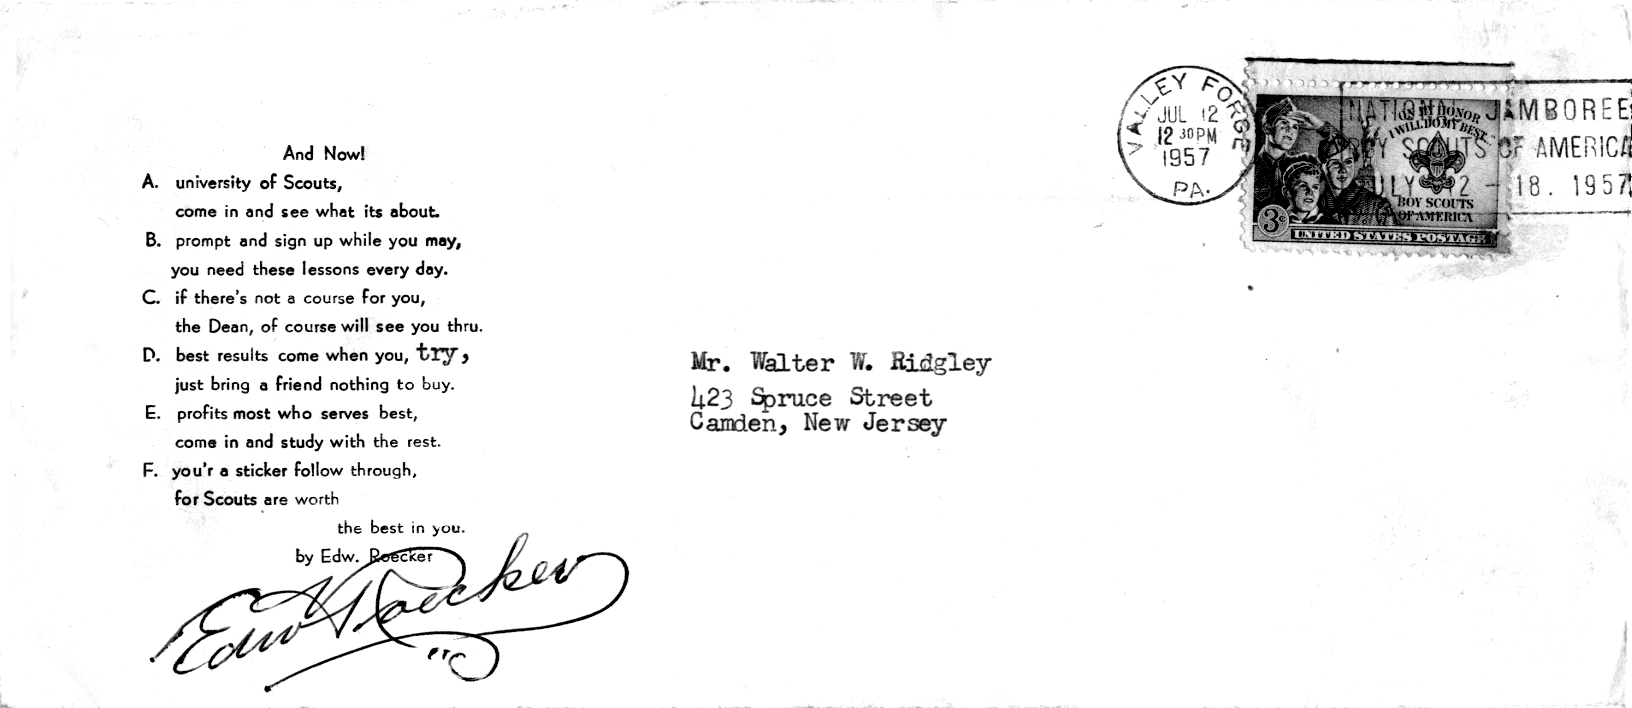 And Now!
A. university of Scouts,
come in and see what its about.
B. prompt and sign up while you may,
you need these lessons every day.
C. if there's not a course for you,
the Dean, of course will see you thru.
D. best results come when you, try,
just bring a friend nothing to buy.
E. profits most who serves best,
come in and study with the rest.
F. you'r a sticker follow through,
for Scouts are worth
the best in you.
by Edw. Roecker
Edw Roecker
VALLEY FORGE
JUL 12
12 30 PM
1957
PA.
NATIONAL JAMBOREE
BOY SCOUTS OF AMERICA
JULY 12 - 18. 1957
ON MY HONOR
I WILL DO MY BEST...
BOY SCOUTS
OF AMERICA
3¢
UNITED STATES POSTAGE
Mr. Walter W. Ridgley
423 Spruce Street
Camden, New Jersey